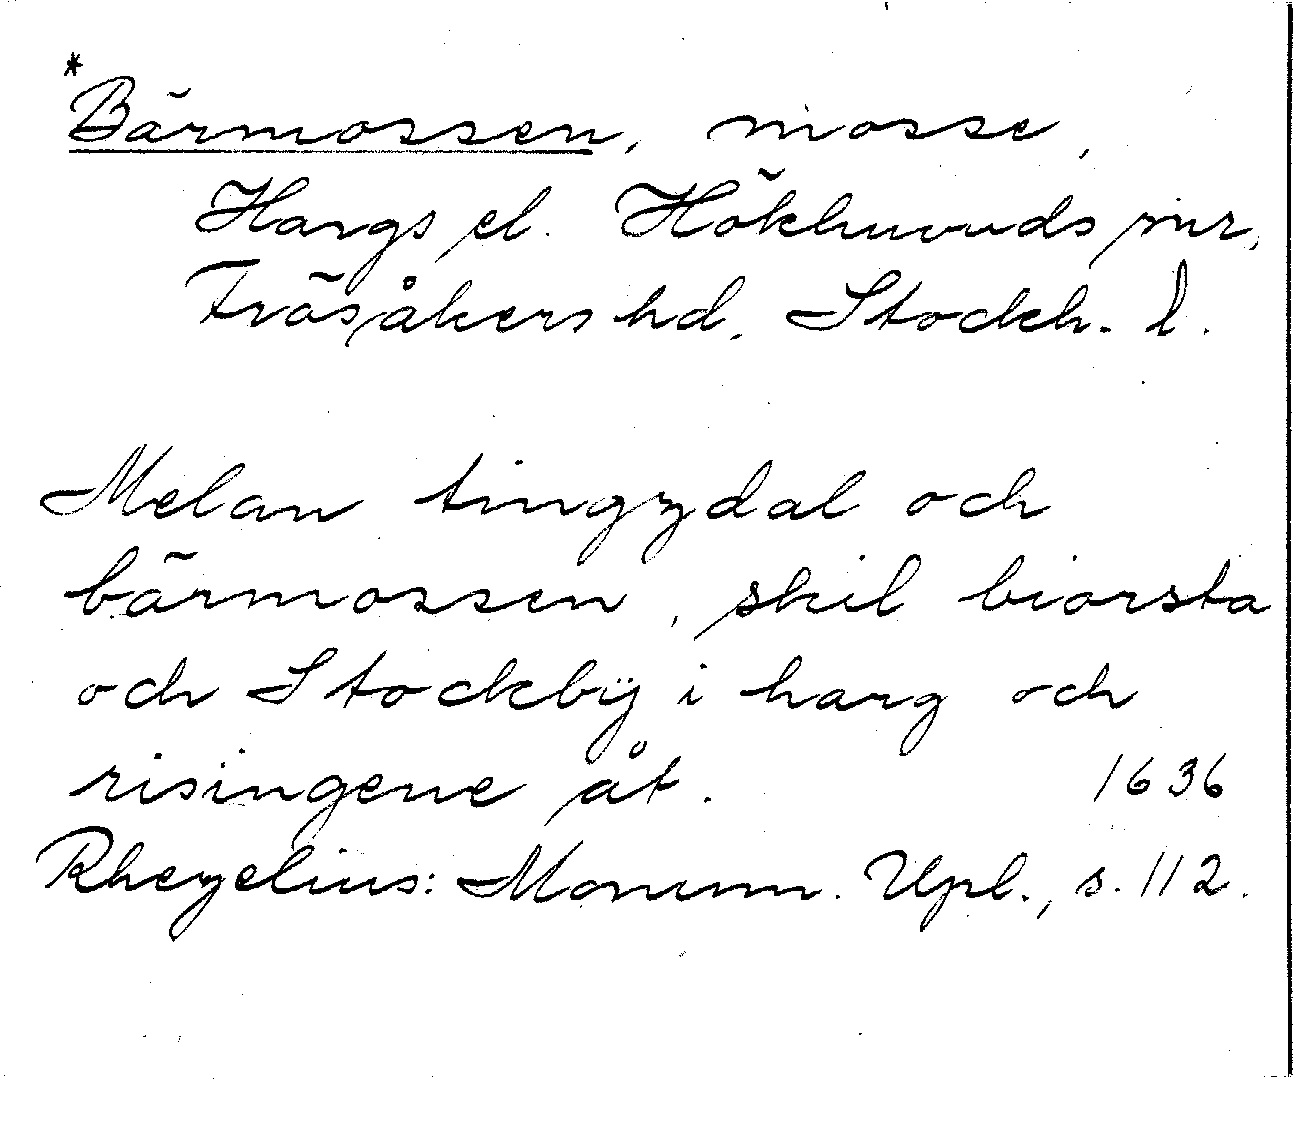 *Bärmossen, mosse,
Hargs el. Hökhuvuds snr,
Frösåkers hd, Stockh. l.
Melan tingzdal och
bärmossen, skil biorsta
och Stockbÿ i harg och
risingene åt. 1636
Rhezelius: Monum. Upl., s. 112.